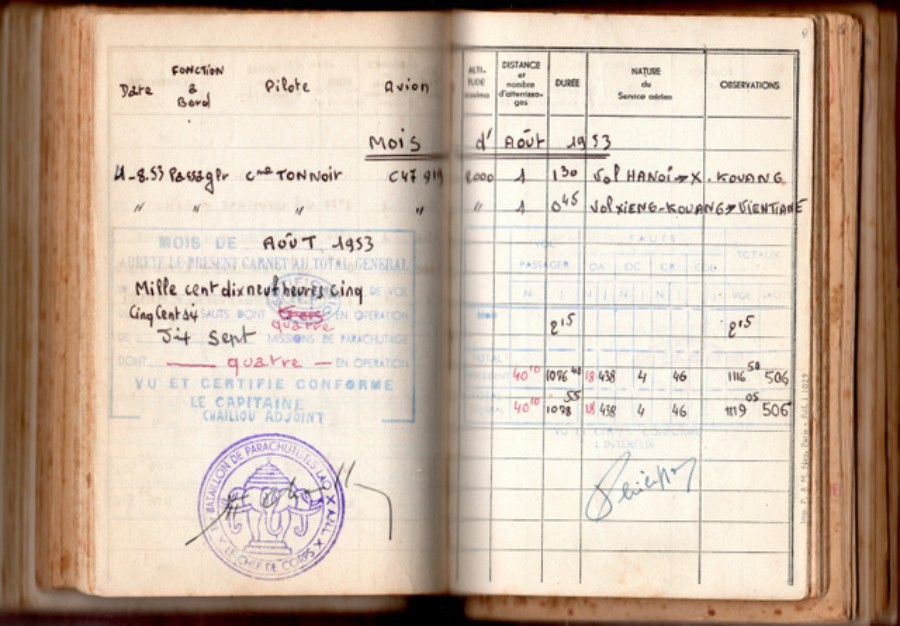 Date FONCTION à Bord Pilote Avion ALTI- TUDE maxima DISTANCE et nombre d'atterrissa- ges DURÉE NATURE du Service aérien OBSERVATIONS
MOIS d' AOÛT 1953
4-8.53 Passager Cne TONNOIR C47 919 2.000 1 1 30 Vol HANOÏ → X. KOUANG
" " " " " 1 0 45 Vol XIENG-KOUANG → VIENTIANE
MOIS DE AOÛT 1953
ARRETE LE PRESENT CARNET AU TOTAL GENERAL
Mille cent dixneuf heures cinq DE VOL
Cinq Cent six SAUTS DONT quatre EN OPERATION
DE Dix Sept MISSIONS DE PARACHUTAGE
DONT quatre EN OPERATION
VU ET CERTIFIE CONFORME
LE CAPITAINE
CHAILLOU ADJOINT
VOL SAUTS TOTAUX
PASSAGER OA OC CR COL
N J N J N J N J VOL SAUTS
MOIS 2 15 2 15
TOTAL
PRECEDENT 40 10 1076 40 18 438 4 46 1116 50 506
TOTAL GENERAL 40 10 1078 55 18 438 4 46 1119 05 506
BATAILLON DE PARACHUTISTES LAO
LE CHEF DE CORPS